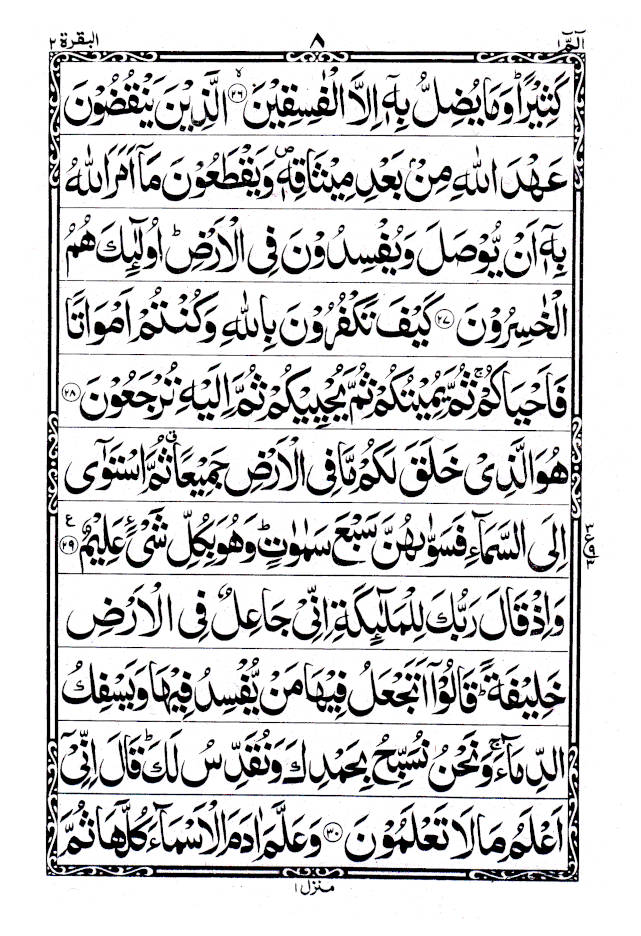 الٓمّٓ ١ ٨ البقرة ٢
كَثِيْرًا ؕ وَمَا يُضِلُّ بِهٖۤ اِلَّا الْفٰسِقِيْنَ ۙ‏﴿۲۶﴾ الَّذِيْنَ يَنْقُضُوْنَ
عَهْدَ اللّٰهِ مِنْۢ بَعْدِ مِيْثَاقِهٖ ۪ وَيَقْطَعُوْنَ مَاۤ اَمَرَ اللّٰهُ
بِهٖۤ اَنْ يُّوْصَلَ وَيُفْسِدُوْنَ فِى الْاَرْضِ ؕ اُولٰٓئِكَ هُمُ
الْخٰسِرُوْنَ ﴿۲۷﴾ كَيْفَ تَكْفُرُوْنَ بِاللّٰهِ وَكُنْتُمْ اَمْوَاتًا
فَاَحْيَاكُمْ ۚ ثُمَّ يُمِيْتُكُمْ ثُمَّ يُحْيِيْكُمْ ثُمَّ اِلَيْهِ تُرْجَعُوْنَ ﴿۲۸﴾
هُوَ الَّذِىْ خَلَقَ لَكُمْ مَّا فِى الْاَرْضِ جَمِيْعًا ۗ ثُمَّ اسْتَوٰۤى
اِلَى السَّمَآءِ فَسَوّٰىهُنَّ سَبْعَ سَمٰوٰتٍ ؕ وَهُوَ بِكُلِّ شَىْءٍ عَلِيْمٌ ﴿۲۹﴾ ع
وَاِذْ قَالَ رَبُّكَ لِلْمَلٰٓئِكَةِ اِنِّىْ جَاعِلٌ فِى الْاَرْضِ
خَلِيْفَةً ؕ قَالُوْۤا اَتَجْعَلُ فِيْهَا مَنْ يُّفْسِدُ فِيْهَا وَيَسْفِكُ
الدِّمَآءَ ۚ وَنَحْنُ نُسَبِّحُ بِحَمْدِكَ وَنُقَدِّسُ لَكَ ؕ قَالَ اِنِّىْۤ
اَعْلَمُ مَا لَا تَعْلَمُوْنَ ﴿۳۰﴾ وَعَلَّمَ اٰدَمَ الْاَسْمَآءَ كُلَّهَا ثُمَّ
منزل ١